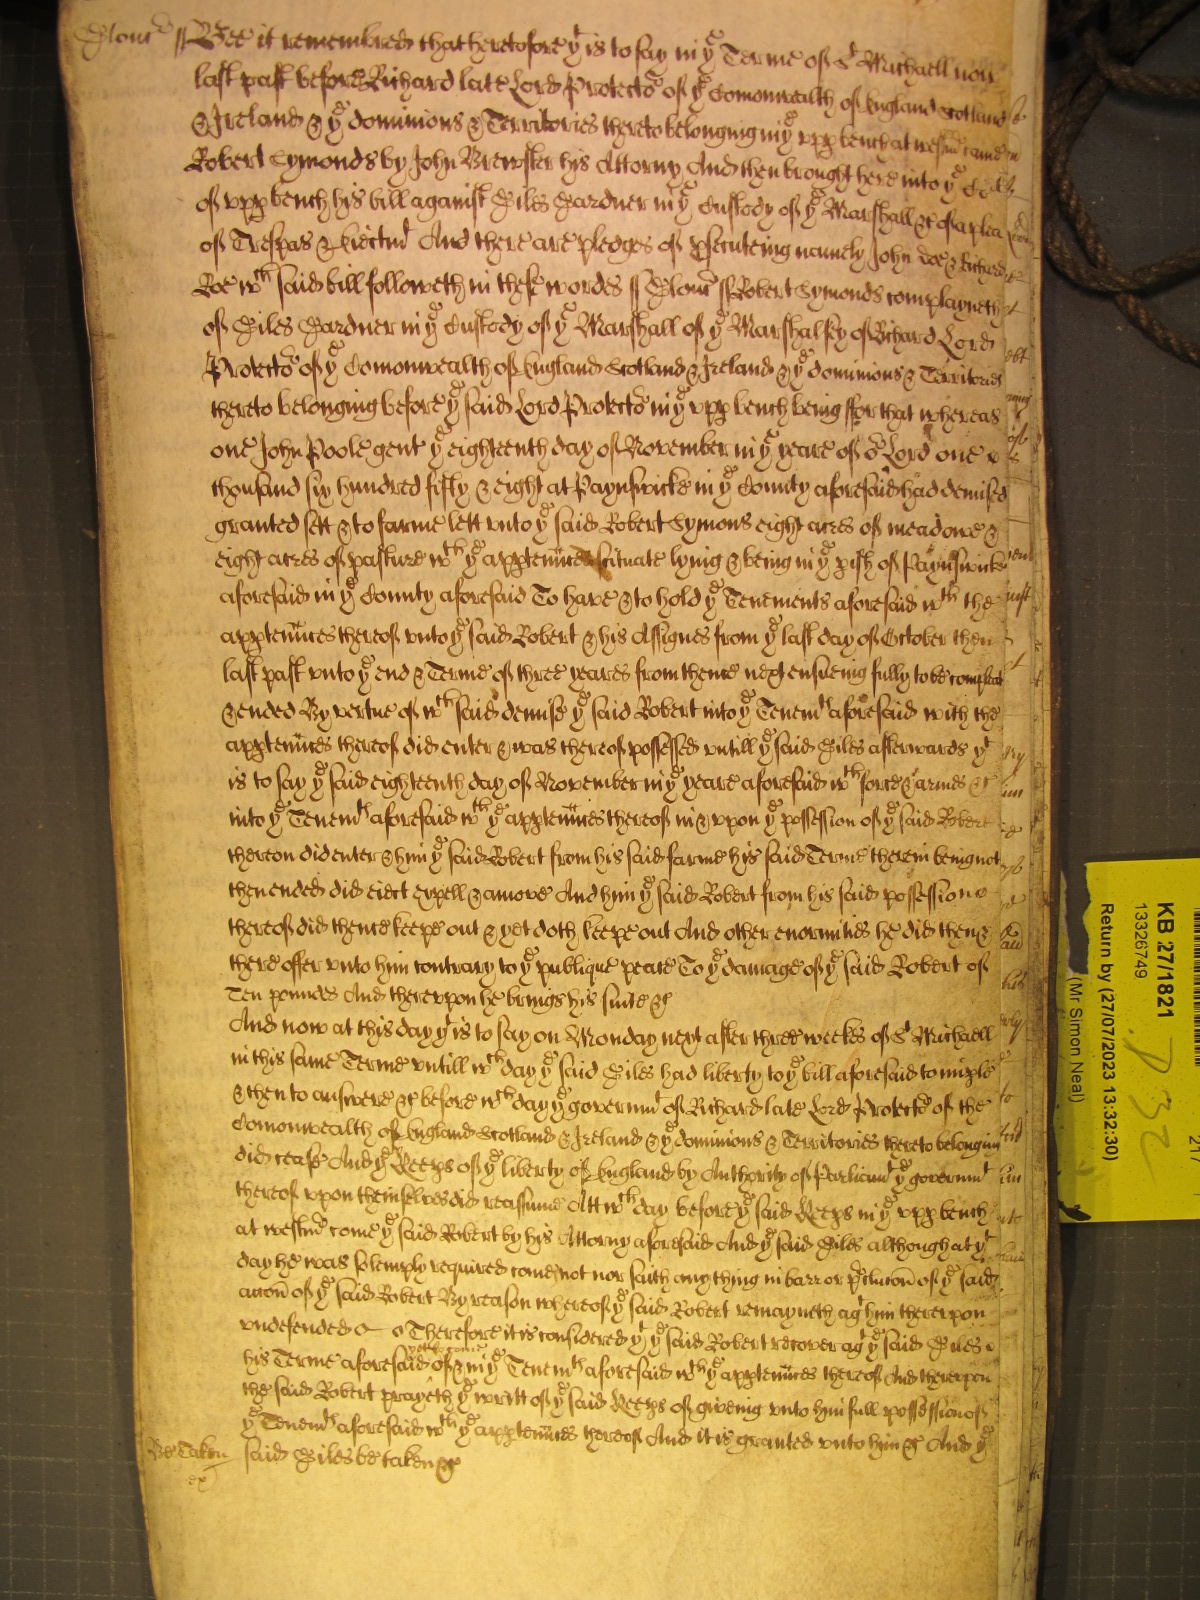 Glouc ss Bee it remembred that heretofore yt is to say in ye Terme of St Michaell now
last past before Richard late Lord Protector of ye Comonwealth of England Scotland
& Ireland & ye dominions & Territories thereto belonging in ye upp bench at westmr came
Robert Symonds by John Brewster his Attorny And then brought here into ye Court
of upp bench his bill against Giles Gardner in ye Custody of ye Marshall &c of a plea
of Trespas & Eiectmt And there are pledges of psecuteing namely John Doe & Richard
Roe wch said bill followeth in these wordes ss Glouc ss Robert Symonds complayneth
of Giles Gardner in ye Custody of ye Marshall of ye Marshalsey of Richard Lord
Protector of ye Comonwealth of England Scotland & Ireland & ye dominions & Territories
thereto belonging before ye said Lord Protector in ye upp bench being ffor that whereas
one John Poole gent ye eighteenth day of November in ye yeare of or Lord one
thousand six hundred fifty & eight at Paynswicke in ye County aforesaid had demised
granted sett & to farme lett unto ye said Robert Symons eight acres of meadowe &
eight acres of pasture wth ye apptenunces situate lying & being in ye pish of Paynswicke
aforesaid in ye County aforesaid To have & to hold ye Tenements aforesaid wth the
apptenunces thereof unto ye said Robert & his Assignes from ye last day of October then
last past unto ye end & Terme of three yeares from thence next ensueing fully to be compleat
& ended By vertue of wch said demise ye said Robert into ye Tenemts aforesaid with the
apptenunces thereof did enter & was thereof possessed untill ye said Giles afterwards yt
is to say ye said eighteenth day of November in ye yeare aforesaid wth force & armes &c
into ye Tenemts aforesaid wth ye apptenunces thereof in & upon ye possession of ye said Robert
thereon did enter & him ye said Robert from his said farme his said Terme therein being not
then ended did eiect expell & amove And him ye said Robert from his said possession
thereof did thence keepe out & yet doth keepe out And other enormities he did then &
there offer unto him contrary to ye publique peace To ye damage of ye said Robert of
Ten poundes And thereupon he brings his suite &c
And now at this day yt is to say on Monday next after three weekes of St Michaell
in this same Terme untill wch day ye said Giles had liberty to ye bill aforesaid to imple
& then to answere &c before wch day ye governmt of Richard late Lord Protector of the
Comonwealth of England Scotland & Ireland & ye dominions & Territories thereto belonging
did cease And ye Keeps of ye liberty of England by Authority of Parliamt ye governmt
thereof upon themselves did reassume Att wch day before ye said Keeps in ye upp bench
at westmr come ye said Robert by his Attorny aforesaid And ye said Giles although at yt
day he was solemply required come not nor saith any thing in barr or pclucon of ye said
accon of ye said Robert By reason whereof ye said Robert remayneth agt him thereupon
undefended Therefore it is considered yt ye said Robert recover agt ye said Giles
his Terme aforesaid yet to come of & in ye Tenemts aforesaid wth ye apptenunces thereof And thereupon
the said Robert prayeth ye writt of ye said Keeps of giveing unto him full possession of
ye Tenemts aforesaid wth ye apptenunces thereof And it is granted unto him &c And ye
Be Taken said Giles be taken &c
ex
KB 27/1821
13326749
Return by (27/07/2023 13:32:30)
(Mr Simon Neal)
217